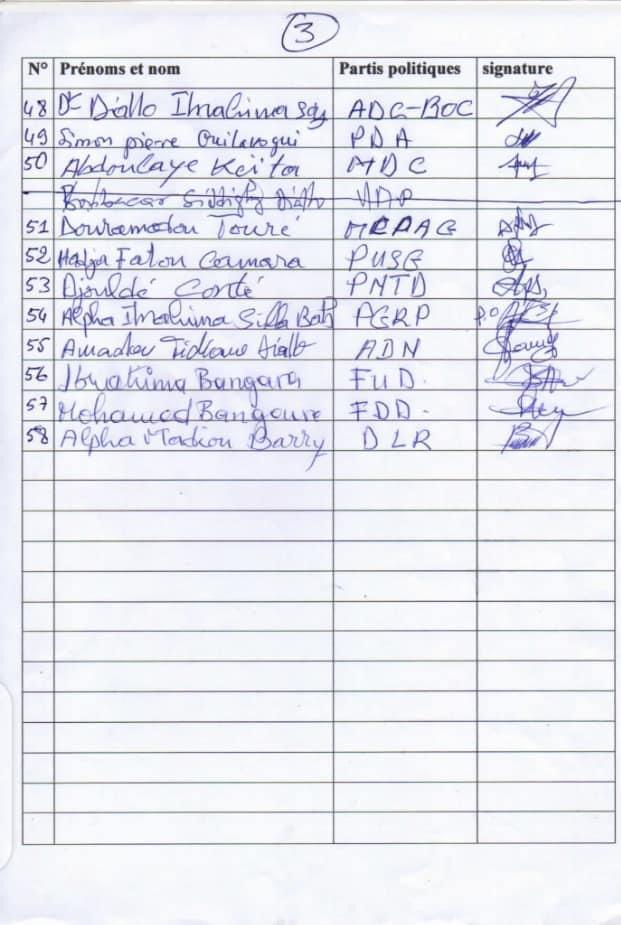 3
N° Prénoms et nom Partis politiques signature
48 Dr Diallo Ibrahima Sory ADC-BOC
49 Simon pierre PDA
50 Abdoulaye Keïta MDC
51 Touré
52 Hadja Fatou Camara PUSG
53 Djouldé Conté PNTD
54 Alpha Ibrahima Silla Bah PGRP P.O
55 Amadou Tidiane Diallo ADN
56 Ibrahima Bangara FUD.
57 Mohamed Bangoura FDD.
58 Alpha Madiou Barry DLR